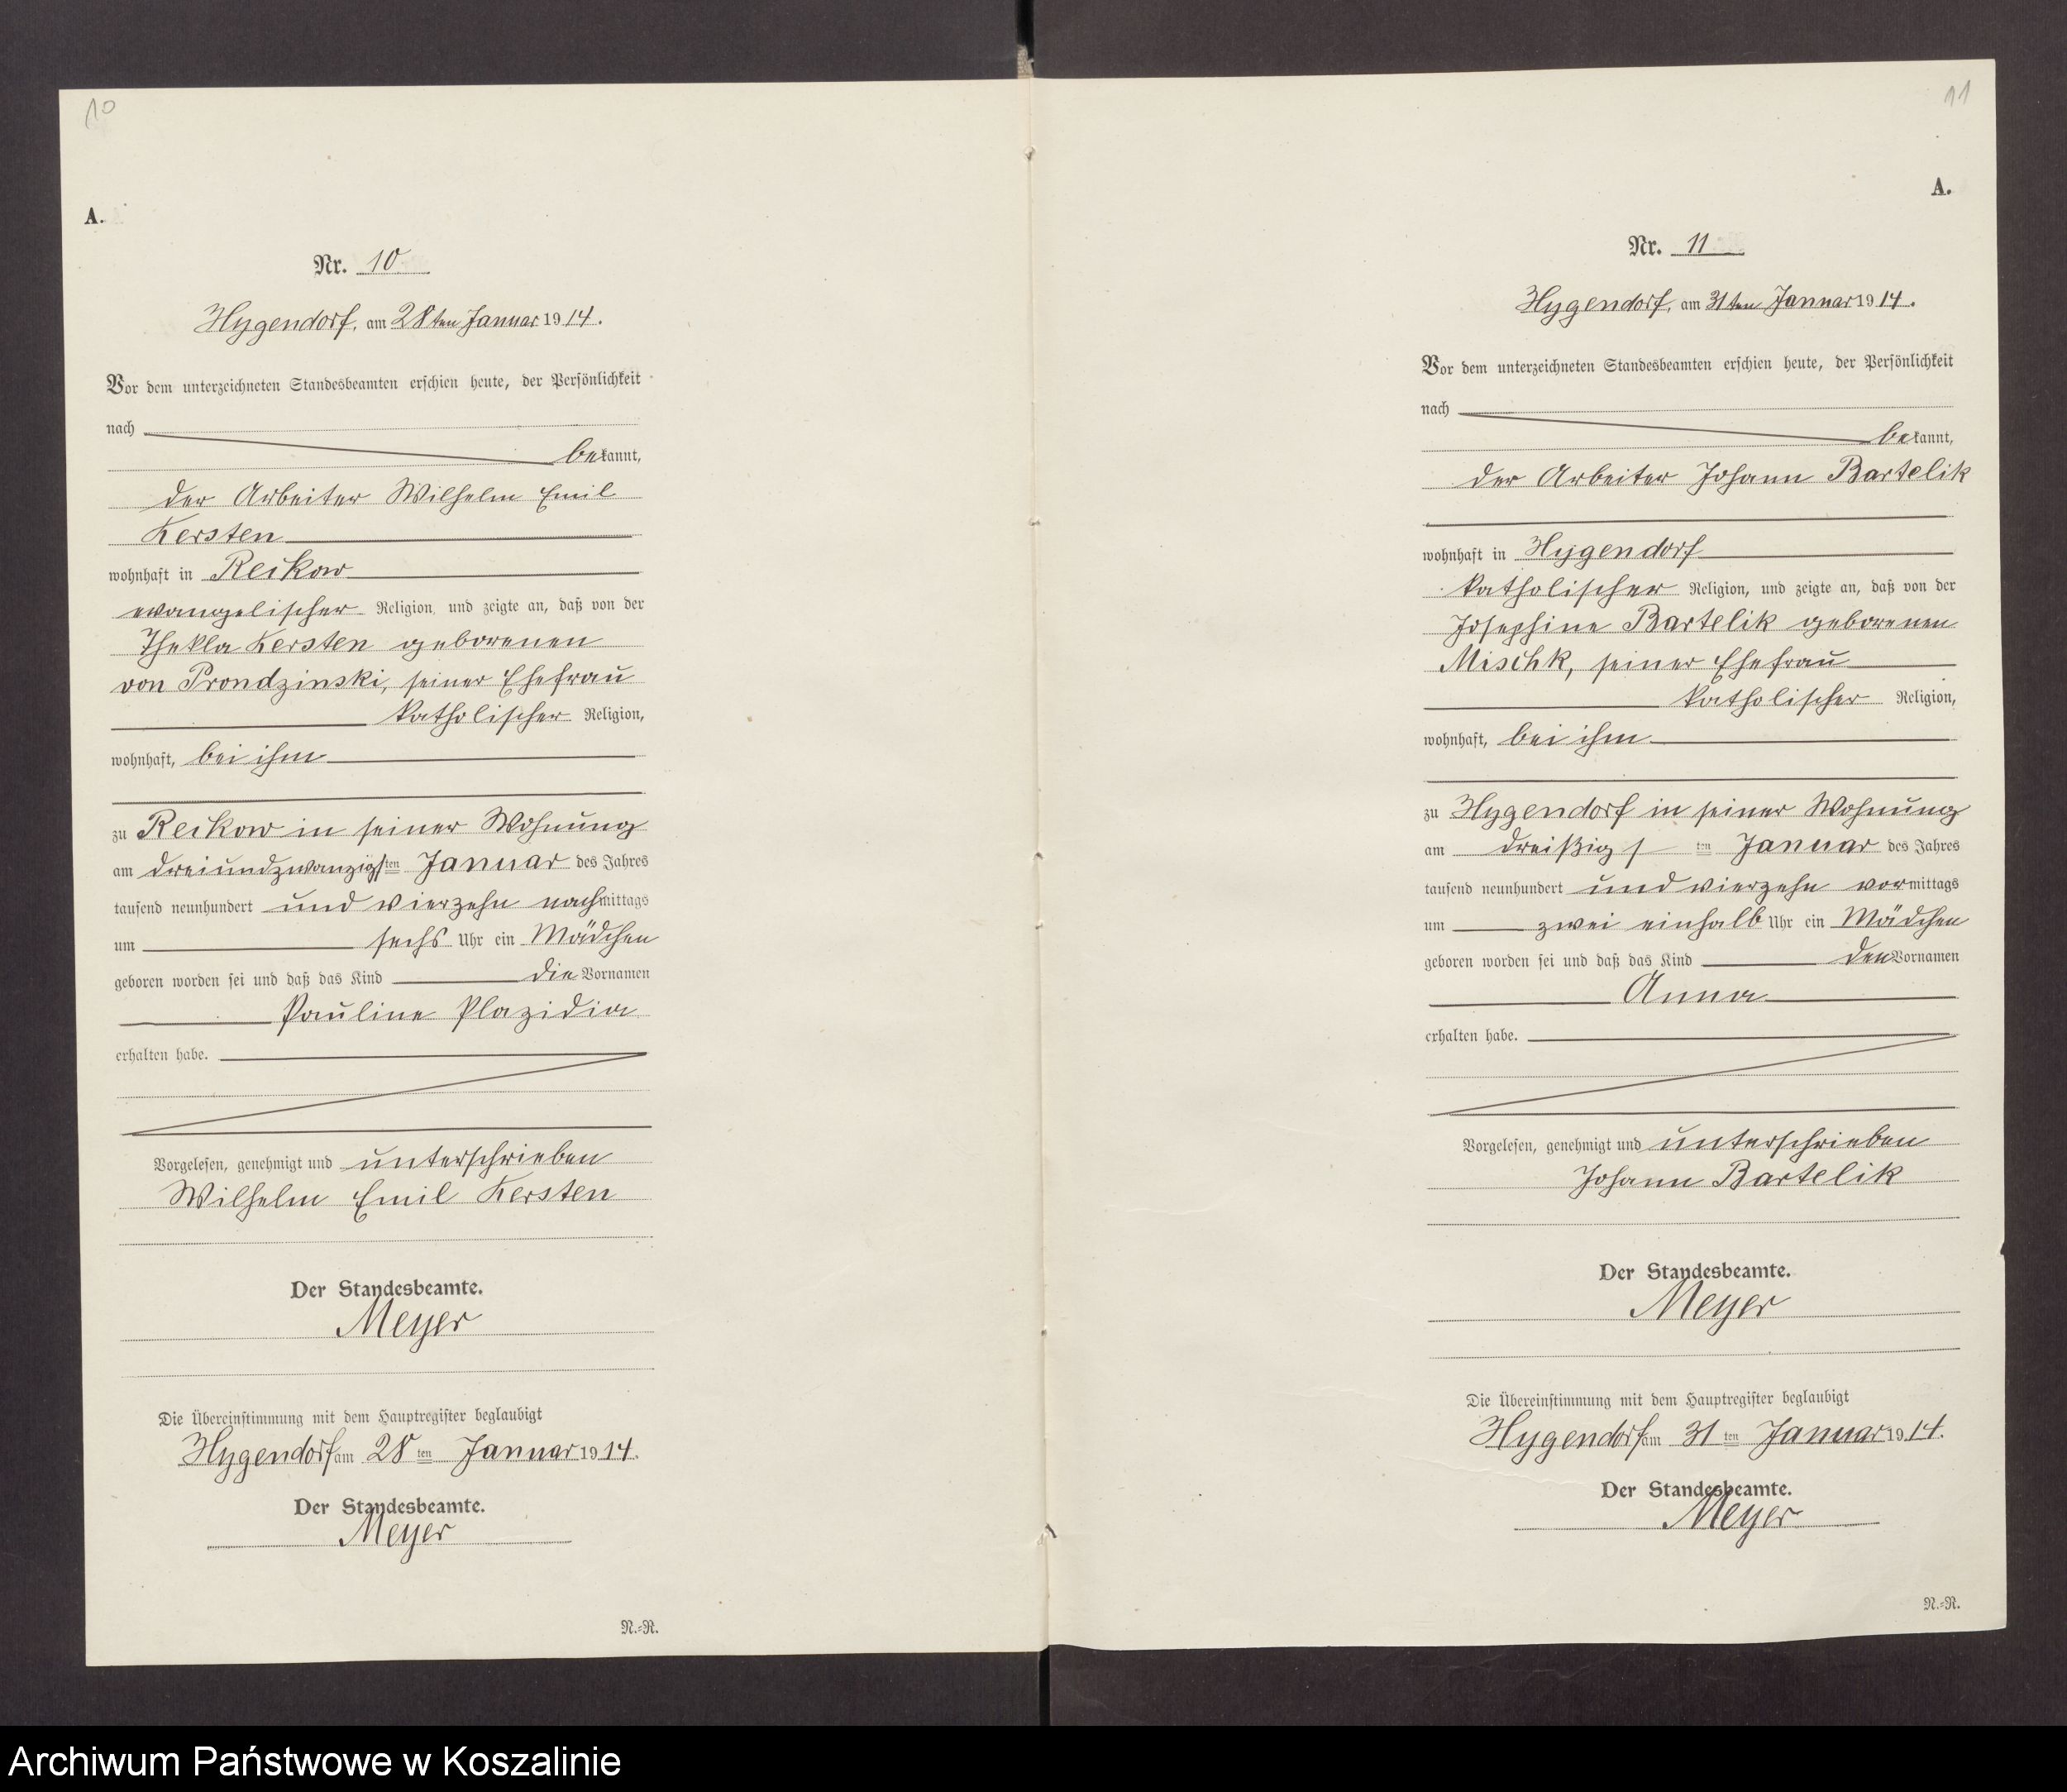 10
A.
Nr. 10
Hygendorf, am 28ten Januar 1914.
Vor dem unterzeichneten Standesbeamten erschien heute, der Persönlichkeit
nach
bekannt,
der Arbeiter Wilhelm Emil
Kersten
wohnhaft in Reikow
evangelischer Religion, und zeigte an, daß von der
Thekla Kersten geborenen
von Prondzinski, seiner Ehefrau
katholischer Religion,
wohnhaft, bei ihm
zu Reikow in seiner Wohnung
am dreiundzwanzigsten Januar des Jahres
tausend neunhundert und vierzehn nachmittags
um sechs Uhr ein Mädchen
geboren worden sei und daß das Kind die Vornamen
Pauline Plazidia
erhalten habe.
Vorgelesen, genehmigt und unterschrieben
Wilhelm Emil Kersten
Der Standesbeamte.
Meyer
Die Übereinstimmung mit dem Hauptregister beglaubigt
Hygendorf am 28ten Januar 1914.
Der Standesbeamte.
Meyer
N.-R.
11
A.
Nr. 11
Hygendorf, am 31ten Januar 1914.
Vor dem unterzeichneten Standesbeamten erschien heute, der Persönlichkeit
nach
bekannt,
der Arbeiter Johann Bartelik
wohnhaft in Hygendorf
katholischer Religion, und zeigte an, daß von der
Josephine Bartelik geborenen
Mischk, seiner Ehefrau
katholischer Religion,
wohnhaft, bei ihm
zu Hygendorf in seiner Wohnung
am dreißigsten Januar des Jahres
tausend neunhundert und vierzehn vormittags
um zwei einhalb Uhr ein Mädchen
geboren worden sei und daß das Kind den Vornamen
Anna
erhalten habe.
Vorgelesen, genehmigt und unterschrieben
Johann Bartelik
Der Standesbeamte.
Meyer
Die Übereinstimmung mit dem Hauptregister beglaubigt
Hygendorf am 31ten Januar 1914.
Der Standesbeamte.
Meyer
N.-R.
Archiwum Państwowe w Koszalinie